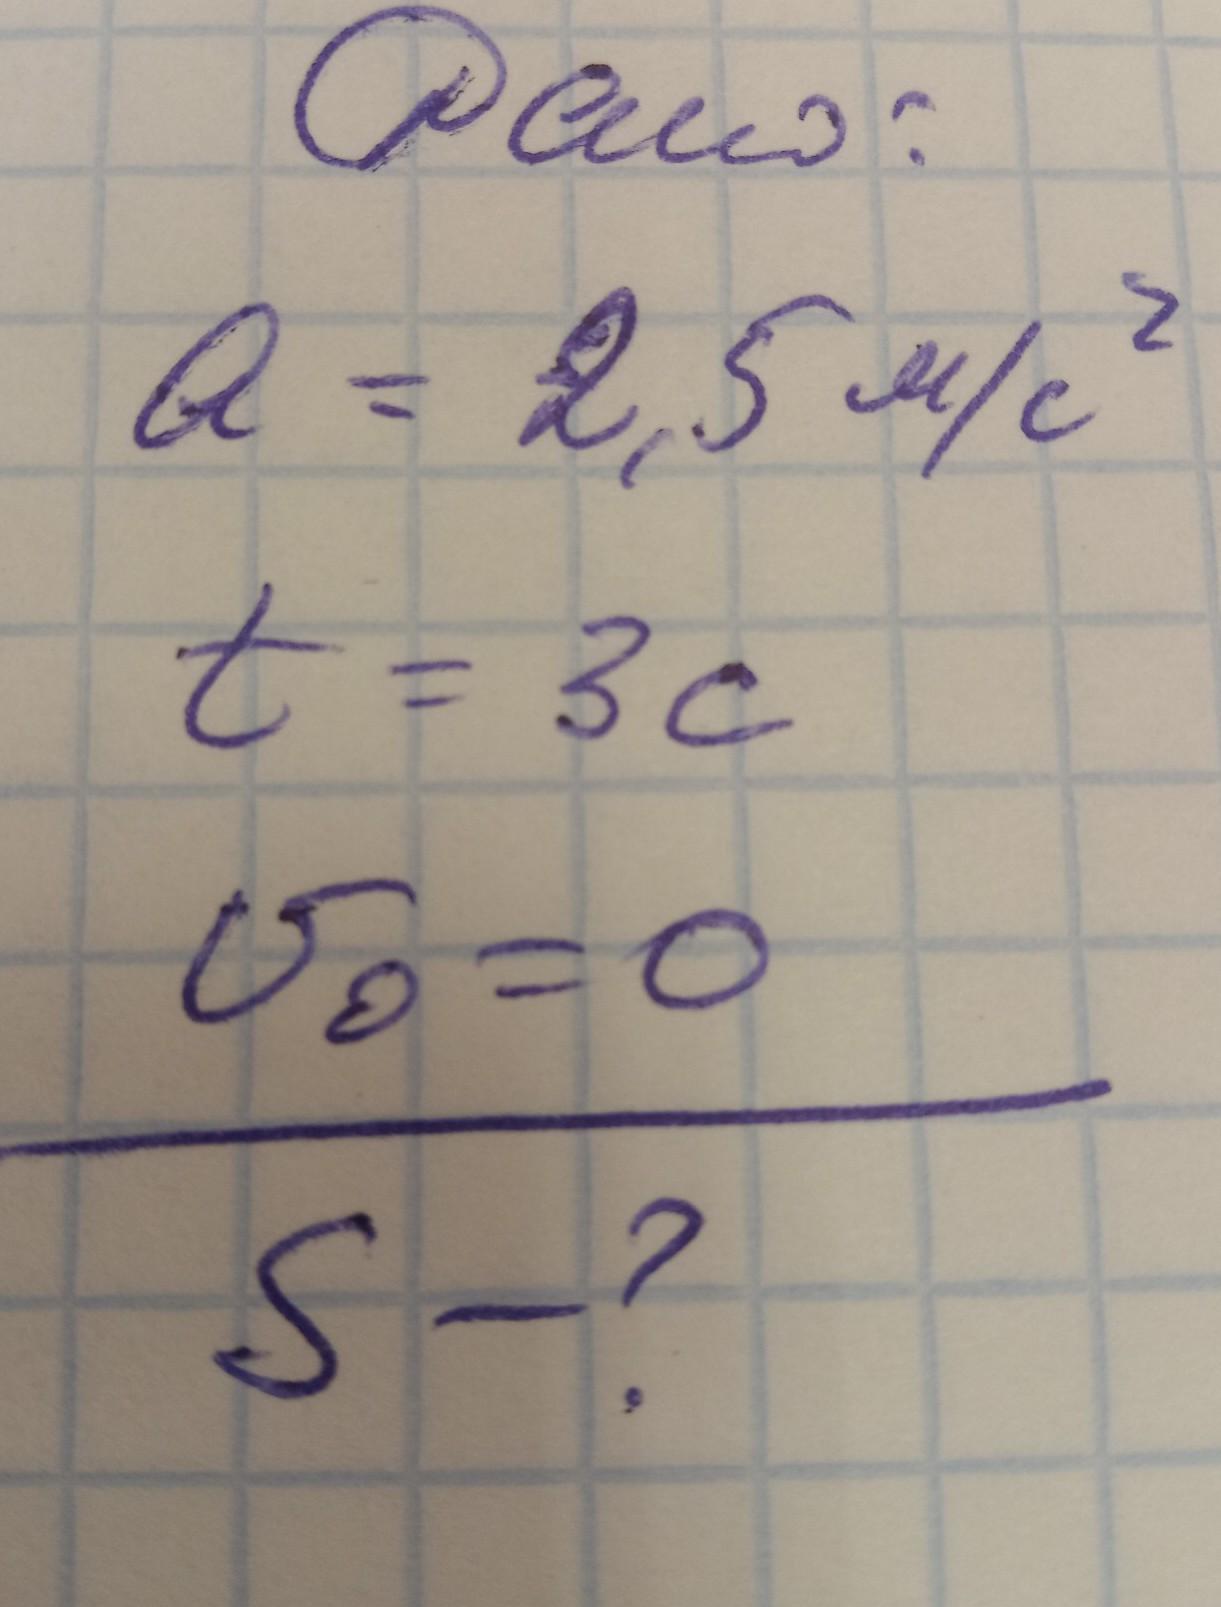 Дано:
a = 2,5 м/с²
t = 3 с
υ₀ = 0
S – ?